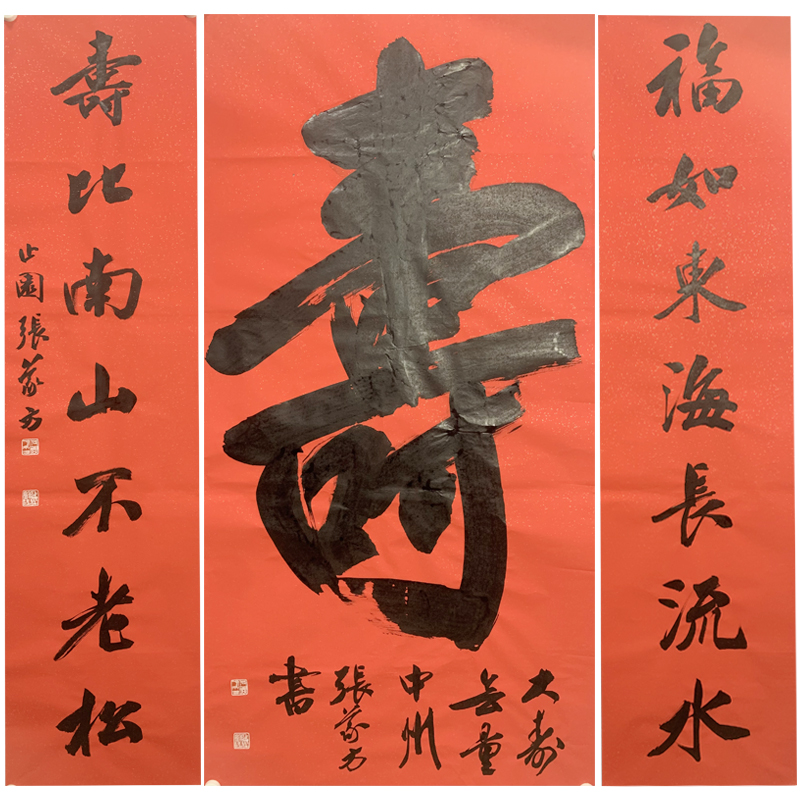 福如東海長流水
壽
大寿
無量
中州
張
書
壽比南山不老松
止園張